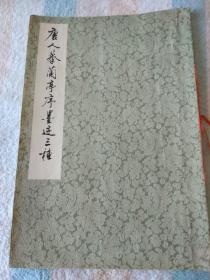 唐人摹蘭亭序墨迹三種